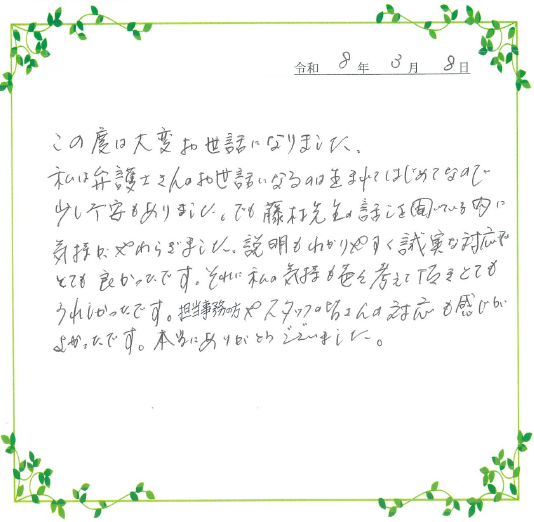 令和 8年 3月 8日
この度は大変お世話になりました。
私は弁護士さんのお世話になるのは生まれてはじめてなので
少し不安もありました。でも藤村先生の話しを聞いている内に
気持がやわらぎました。説明もわかりやすく誠実な対応で
とても良かったです。それに私の気持も色々考えて頂きとても
うれしかったです。担当事務の方やスタッフの皆さんの対応も感じが
よかったです。本当にありがとうございました。